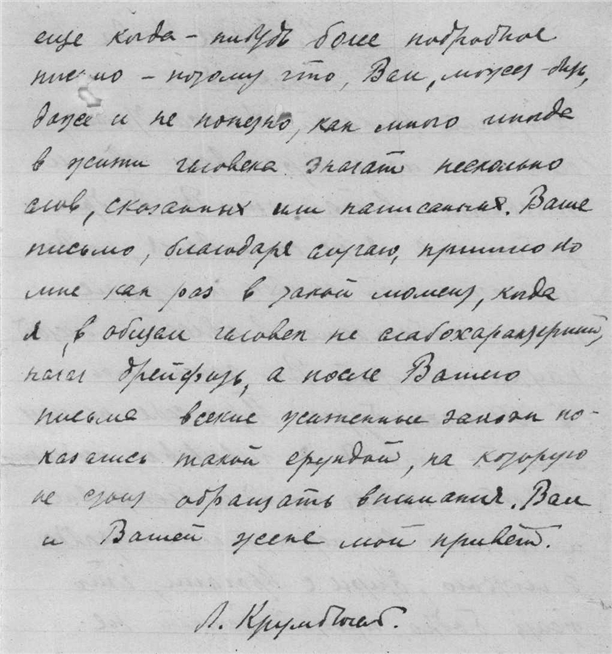 еще когда-нибудь более подробное
письмо – потому что, Вам, может-быть,
даже и не понятно, как много иногда
в жизни человека значат несколько
слов, сказанных или написанных. Ваше
письмо, благодаря случаю, пришло ко
мне как раз в такой момент, когда
я, в общем человек не слабохарактерный,
начал дрейфить, а после Вашего
письма всякие жизненные заботы по-
казались такой ерундой, на которую
не стоит обращать внимания. Вам
и Вашей жене мой привет.
Л.